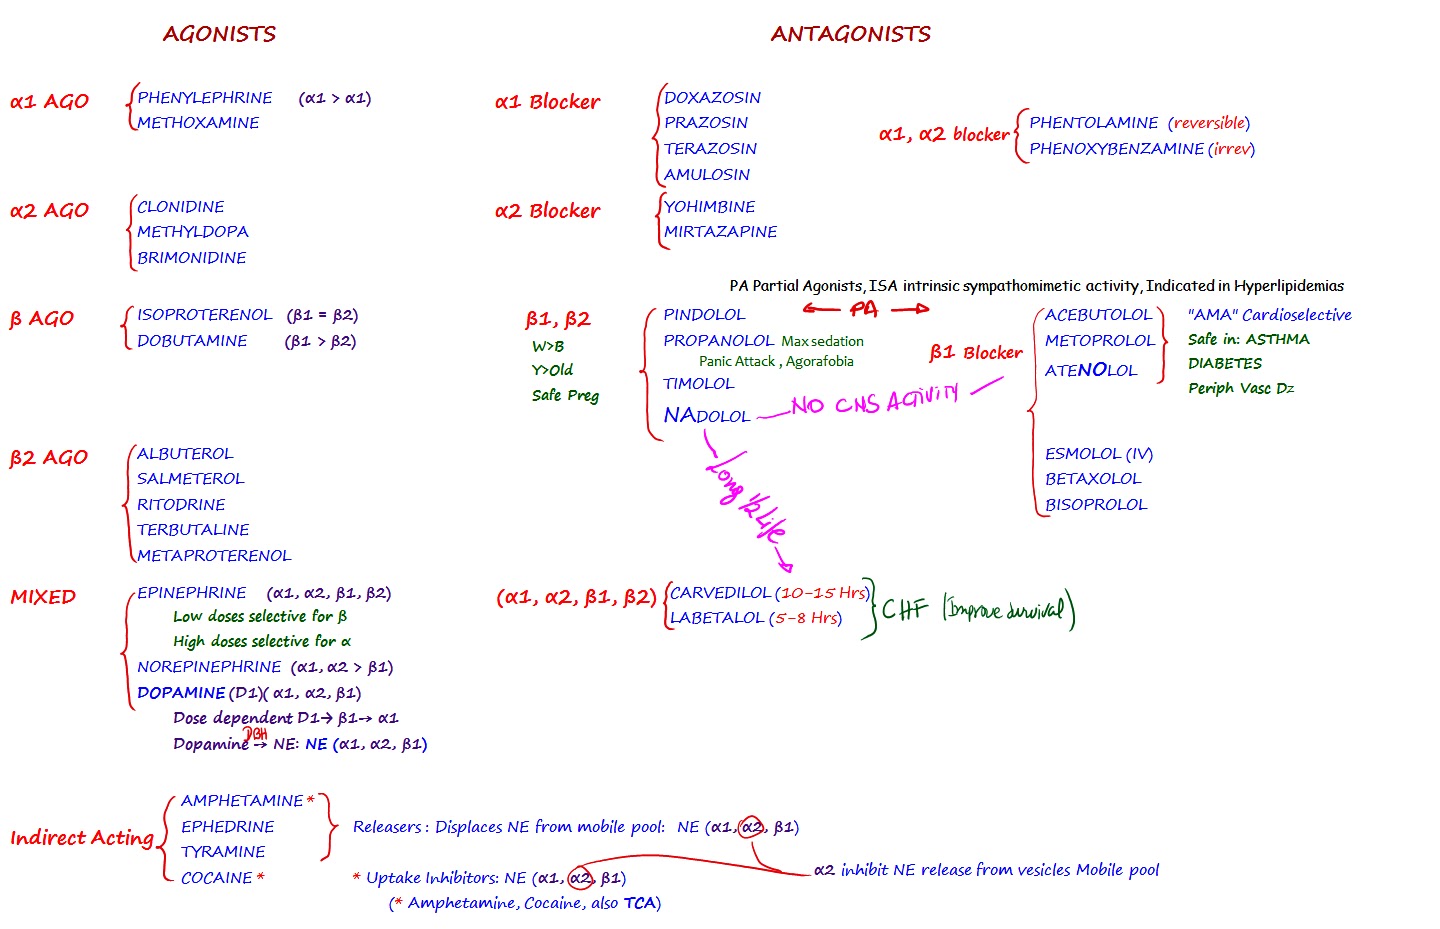 AGONISTS
ANTAGONISTS
α1 AGO
PHENYLEPHRINE (α1 > α1)
METHOXAMINE
α1 Blocker
DOXAZOSIN
PRAZOSIN
TERAZOSIN
AMULOSIN
α1, α2 blocker
PHENTOLAMINE (reversible)
PHENOXYBENZAMINE (irrev)
α2 AGO
CLONIDINE
METHYLDOPA
BRIMONIDINE
α2 Blocker
YOHIMBINE
MIRTAZAPINE
PA Partial Agonists, ISA intrinsic sympathomimetic activity, Indicated in Hyperlipidemias
β AGO
ISOPROTERENOL (β1 = β2)
DOBUTAMINE (β1 > β2)
β1, β2
W>B
Y>Old
Safe Preg
PINDOLOL
← PA →
PROPANOLOL Max sedation
Panic Attack , Agorafobia
TIMOLOL
NADOLOL
NO CNS ACTIVITY
Long ½ Life
β1 Blocker
ACEBUTOLOL
METOPROLOL
ATENOLOL
"AMA" Cardioselective
Safe in: ASTHMA
DIABETES
Periph Vasc Dz
ESMOLOL (IV)
BETAXOLOL
BISOPROLOL
β2 AGO
ALBUTEROL
SALMETEROL
RITODRINE
TERBUTALINE
METAPROTERENOL
MIXED
EPINEPHRINE (α1, α2, β1, β2)
Low doses selective for β
High doses selective for α
NOREPINEPHRINE (α1, α2 > β1)
DOPAMINE (D1)( α1, α2, β1)
Dose dependent D1→ β1→ α1
DBH
Dopamine → NE: NE (α1, α2, β1)
(α1, α2, β1, β2)
CARVEDILOL (10-15 Hrs)
LABETALOL (5-8 Hrs)
CHF (Improve survival)
Indirect Acting
AMPHETAMINE *
EPHEDRINE
TYRAMINE
COCAINE *
Releasers : Displaces NE from mobile pool: NE (α1, α2, β1)
* Uptake Inhibitors: NE (α1, α2, β1)
(* Amphetamine, Cocaine, also TCA)
α2 inhibit NE release from vesicles Mobile pool